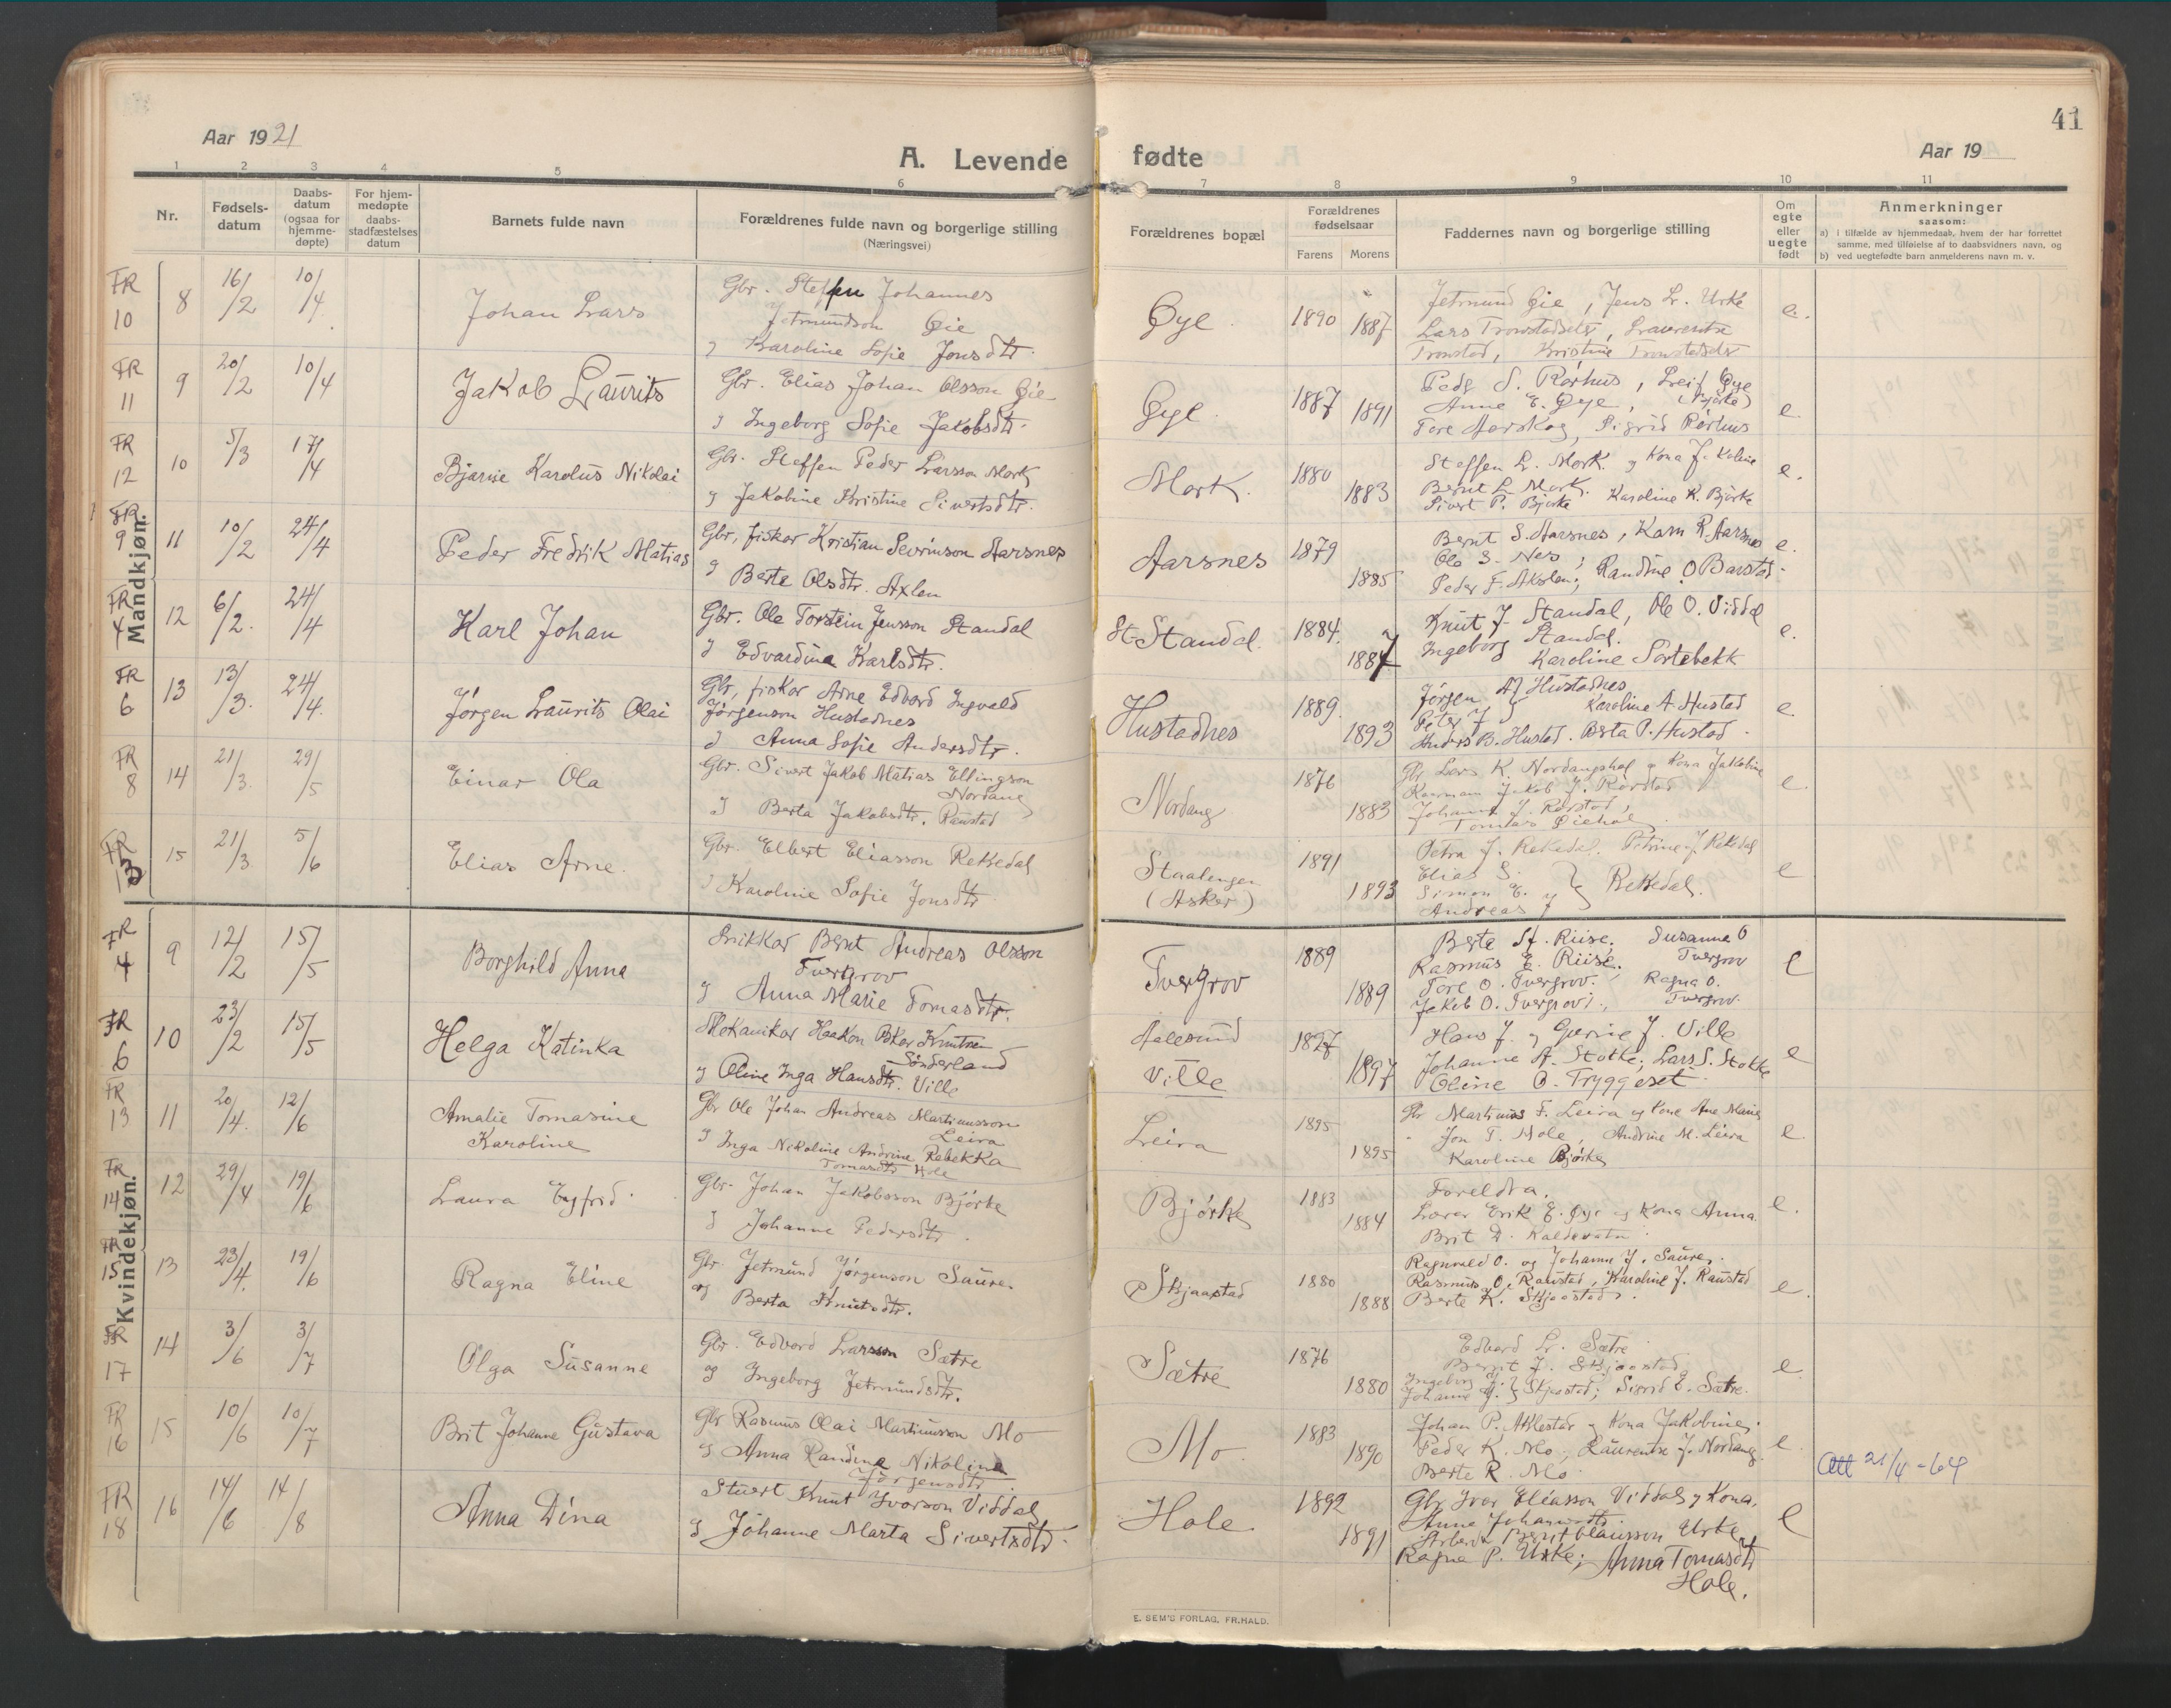 41
Aar 1921
A. Levende
fødte
Aar 19
1 2 3 4 5 6 7 8 9 10 11
Nr.
Fødsels-
datum
Daabs-
datum
(ogsaa for
hjemme-
døpte)
For hjem-
medøpte
daabs-
stadfæstelses
datum
Barnets fulde navn
Forældrenes fulde navn og borgerlige stilling
(Næringsvei)
Forældrenes bopæl
Forældrenes
fødselsaar
Farens Morens
Faddernes navn og borgerlige stilling
Om
egte
eller
uegte
født
Anmerkninger
saasom:
a) i tilfælde av hjemmedaab, hvem der har forrettet
samme, med tilføielse af to daabsvidners navn, og
b) ved uegtefødte barn anmelderens navn m. v.
Mandkjøn.
FR 10
8 16/2 10/4
Johan Lars
Gbr. Steffen Johannes
Jetmundson Øie
Karoline Sofie Jonsdtr.
Øye.
1890 1887
Jetmund Øie, Jens L. Urke
Lars Tronstad
Tronstad, Kristine
e.
FR 11
9 20/2 10/4
Jakob Laurits
Gbr. Elias Johan Olsson Øie
Ingeborg Sofie Jakobsdtr.
Øye.
1887 1891
Peder S. Rørhus, Leif Øye
Anne E. Øye, (Bjørke)
Tore Aarskog, Sigrid Rørhus
e.
FR 12
10 5/3 17/4
Bjarne Karolus Nikolai
Gbr. Steffen Peder Larsson Mork
g Jakobine Kristine Sivertsdtr.
Mork.
1880 1883
Steffen L. Mork. g Kona J. Koline
Bernt L. Mork.
Sivert P. Bjørke Karoline K. Bjørke
e.
FR 9
11 10/2 24/4
Peder Fredrik Matias
Gbr, fisker Kristian Sevrinson Aarsnes
g Berte Olsdtr. Axlen
Aarsnes
1879 1885
Bernt S. Aarsnes, Karn R. Aarsnes
Ole S. Nes;
Peder F. Akslen; Randine O Barstad.
e.
FR 4
12 6/2. 24/4
Karl Johan
Gbr. Ole Torstein Jensson Standal
g Edvardina Karlsdtr.
St-Standal.
1884. 1887
Knut J. Standal, Ole O. Viddal
Ingeborg Standal.
Karoline Sortebekk
e.
FR 6
13 13/3. 24/4.
Jørgen Laurits Olai
Gbr, fisker Arne Edvard Ingvald
Jørgenson Hustadnes
g Anna Sofie Andersdtr.
Hustadnes
1889. 1893
Jørgen A. } Hustadnes
Peter J. Karoline A. Hustad
Anders B. Hustad. Berta P. Hustad.
e
FR 8
14 21/3. 29/5
Einar Ola
Gbr. Sivert Jakob Matias Ellingson
Nordang
g Berta Jakobsdtr. Raustad
Nordang
1876 1883
Gbr Lars K. Nordangshol g Kona Jakobine
Jakob J.
Johanne J.
Tomas Øiehol
e.
FR
15 21/3. 5/6
Elias Arne.
Gbr. Elbert Eliasson Rekkedal
g Karoline Sofie Jonsdtr
Staalengen
(Asker)
1891 1893
Petra J. Rekkedal. Petrine J. Rekkedal
Elias S.
Simon E. g } Rekkedal.
Andreas J
e
Kvindekjøn.
FR 4
9 12/2 15/5
Borghild Anna
Snikkar Bernt Andreas Olsson
Tvergrov
g Anna Marie Tomasdtr.
Tvergrov
1889 1889
Berte St. Riise; Susanna O
Rasmus E. Riise. Tvergrov
Tore O. Tvergrov. Ragna O.
Jakob O. Tvergrov. Tvergrov.
e
FR 6
10 23/2 15/5
Helga Katinka
Mekanikar Haakon Oskar Knutsen
Sønderland
g Oline Inga Hansdtr. Ville
Aalesund
Ville
1827 1897
Hans J. g Gurine J. Ville
Johanne A. Stokke; Lars S. Stokke
Oline O. Tryggeset
e
FR 13
11 20/4. 12/6
Amalie Tomasine
Karoline
Gbr Ole Johan Andreas Martinusson
Leira
g Inga Nikoline Andrine Rebekka
Tomasdtr Hole
Leira
1895 1895
Gbr Martinus F. Leira og Kona Ane Marie
Jon T. Hole, Andrine M. Leira
Karoline Bjørke
e
FR 14
12 29/4 19/6
Laura Eyfrid.
Gbr. Johan Jakobsson Bjørke
g Johanne Pedersdtr.
Bjørke
1883 1884
Foreldra.
Lærer Erik E. Øye og Kona Anna.
Brit D. Kaldevatn
e.
FR 15
13 23/4. 19/6
Ragna Eline
Gbr Jetmund Jørgenson Saure.
og Berta Knutsdtr.
Skjaastad
1880 1888
Ragnvald O. og Johanne J. Saure,
Rasmus O. Raustad, Karoline J. Raustad
Berte K. Skjaastad.
e.
FR 17
14 3/6 3/7
Olga Susanne
Gbr. Edvard Larsson Sætre
og Ingeborg Jetmundsdtr.
Sætre
1876 1880
Edvard L. Sætre
Bernt J. Skjaastad
Ingeborg J.
Johanne J. } Skjaastad; Sigrid E. Sætre.
e.
FR 16
15 10/6 10/7
Brit Johanne Gustava
Gbr Rasmus Olai Martinusson Mo
g Anna Randine Nikoline
Jørgensdtr.
Mo.
1883 1890
Johan P. Aklestad g Kona Jakobine;
Peder K. Mo; Laurentse J. Nordang.
Berte R. Mo.
e.
Att 21/4-64
FR 18
16 14/6 14/8
Anna Dina
Stuert Knut Ivarson Viddal
g Johanne Marta Sivertsdtr.
Hole.
1892 1891
Gbr Ivar Eliasson Viddal g Kona,
Anne
Arbeidar Bernt Clausson Urke
Ragna P. Urke; Anna Tomasdtr
Hole.
e
E. SEM'S FORLAG, FR.HALD.